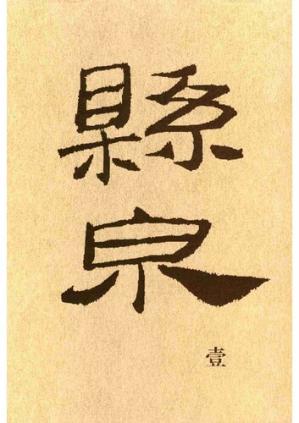 縣
泉
壹